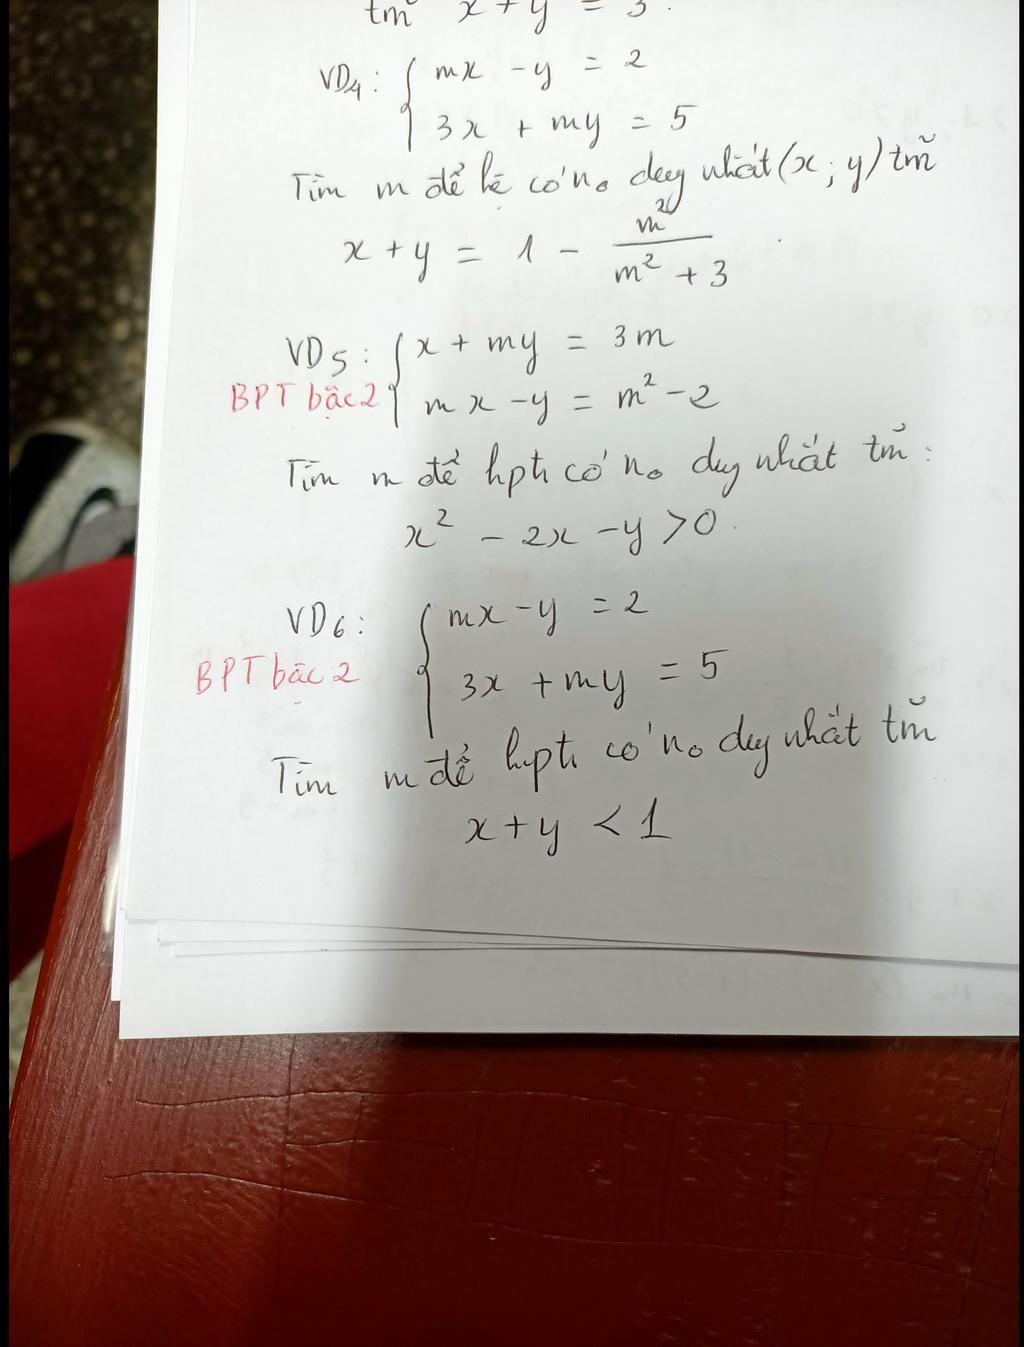 tm x + y = 3.
VD4: { mx - y = 2
3x + my = 5
Tìm m để hệ có no duy nhất (x; y) tm̃
x + y = 1 - m²/(m² + 3)
VD5: { x + my = 3m
BPT bậc 2 { mx - y = m² - 2
Tìm m để hpt có no duy nhất tm̃:
x² - 2x - y > 0.
VD6: { mx - y = 2
BPT bậc 2 { 3x + my = 5
Tìm m để hpt có no duy nhất tm̃
x + y < 1